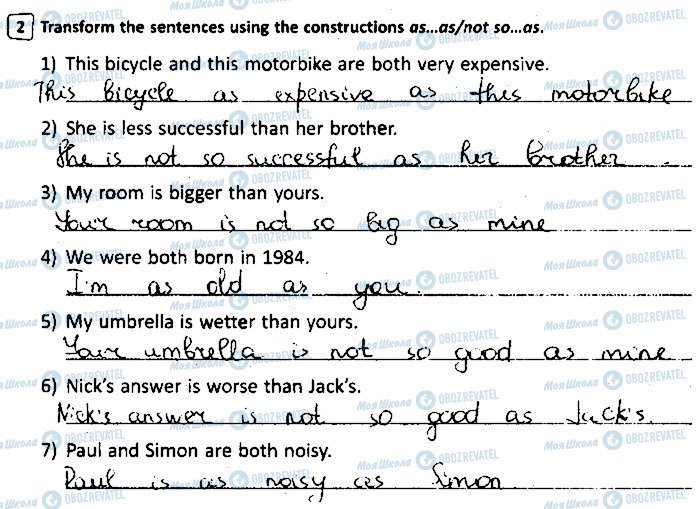 2 Transform the sentences using the constructions as...as/not so...as.
1) This bicycle and this motorbike are both very expensive.
This bicycle as expensive as this motorbike
2) She is less successful than her brother.
She is not so successful as her brother.
3) My room is bigger than yours.
Your room is not so big as mine
4) We were both born in 1984.
I'm as old as you.
5) My umbrella is wetter than yours.
Your umbrella is not so good as mine
6) Nick's answer is worse than Jack's.
Nick's answer is not so good as Jack's.
7) Paul and Simon are both noisy.
Paul is as noisy as Simon
Моя Школа OBOZREVATEL